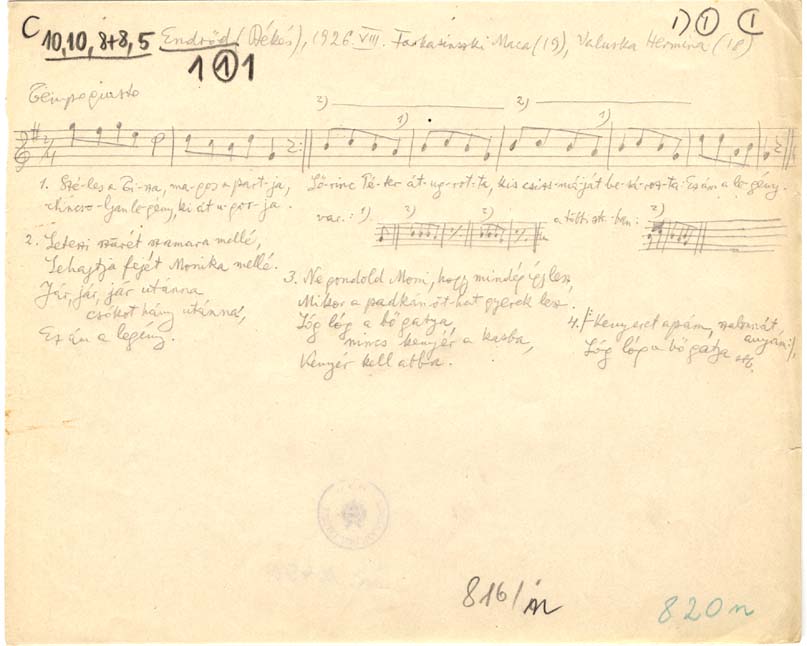 C 10,10, 8+8, 5 Endrőd (Békés), 1926. VIII. Farkasinszki Maca (19), Valuska Hermina (18)
1) 1 1
1 1 1
Tempo giusto
2) 2)
1) 1)
1. Szé-les a Ti-sza, ma-gos a part-ja, Lő-rinc Pé-ter át-ug-rot-ta, kis csiz-máját be-sá-roz-ta. Ez ám a le-gény.
nincs o-lyan legény, ki át u-gor-ja.
var.: 1) 2) 2) a többi vsz.-ban: 2)
2. Leteszi szűrét szamara mellé,
Lehajtja fejét Monika mellé.
Jár, jár, jár utánna
csókot hány utánna,
Ez ám a legény.
3. Ne gondold Moni, hogy mindég így lesz,
Mikor a padkán öt-hat gyerek lesz.
Lóg lóg a bő gatya,
nincs kenyér a kasba,
Kenyér kell abba.
4. /: Kenyeret apám, szalonnát, anyám :/,
Lóg lóg a bő gatya stb.
816/
820